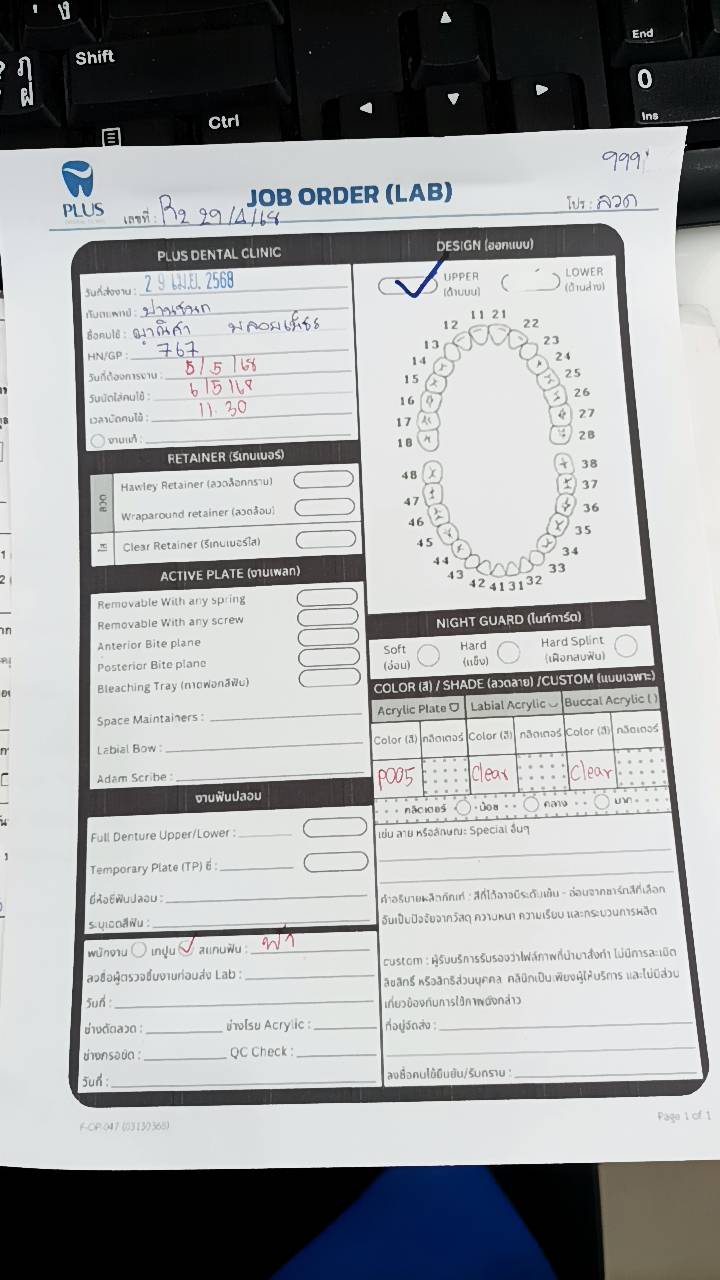 ฎ
ฝ
Shift
Ctrl
End
0
Ins
999
PLUS
JOB ORDER (LAB)
เลขที่ : R2 29/4/68
โปร : ลวด
PLUS DENTAL CLINIC
วันที่ส่งงาน : 29 เม.ย. 2568
ทันตแพทย์ : ปานชนก
ชื่อคนไข้ :
HN/GP : 767
วันที่ต้องการงาน : 5/5/68
วันนัดใส่คนไข้ : 6/5/68
เวลานัดคนไข้ : 11.30
งานแก้ :
RETAINER (รีเทนเนอร์)
ลวด
Hawley Retainer (ลวดล็อกกราม)
Wraparound retainer (ลวดล้อม)
ใส
Clear Retainer (รีเทนเนอร์ใส)
ACTIVE PLATE (งานเพลท)
Removable With any spring
Removable With any screw
Anterior Bite plane
Posterior Bite plane
Bleaching Tray (ถาดฟอกสีฟัน)
Space Maintainers :
Labial Bow :
Adam Scribe :
งานฟันปลอม
Full Denture Upper/Lower :
Temporary Plate (TP) ซี่ :
ยี่ห้อซี่ฟันปลอม :
ระบุเฉดสีฟัน :
พนักงาน เทปูน สแกนฟัน : ฟ้า
ลงชื่อผู้ตรวจชิ้นงานก่อนส่ง Lab :
วันที่ :
ช่างดัดลวด : ช่างโรย Acrylic :
ช่างกรอขัด : QC Check :
วันที่ :
DESIGN (ออกแบบ)
UPPER
(ด้านบน)
LOWER
(ด้านล่าง)
11 21
12 22
13 23
14 24
15 25
16 26
17 27
18 28
48 38
47 37
46 36
45 35
44 34
43 33
42 41 31 32
NIGHT GUARD (ไนท์การ์ด)
Soft
(อ่อน)
Hard
(แข็ง)
Hard Splint
(เฝือกสบฟัน)
COLOR (สี) / SHADE (ลวดลาย) /CUSTOM (แบบเฉพาะ)
Acrylic Plate Labial Acrylic Buccal Acrylic ( )
Color (สี) กลิตเตอร์ Color (สี) กลิตเตอร์ Color (สี) กลิตเตอร์
P005 Clear Clear
กลิตเตอร์ น้อย กลาง มาก
เช่น ลาย หรือลักษณะ Special อื่นๆ
คำอธิบายผลิตภัณฑ์ : สีที่ได้อาจมีระดับเข้ม - อ่อนจากชาร์ทสีที่เลือก
อันเป็นปัจจัยจากวัสดุ ความหนา ความเรียบ และกระบวนการผลิต
custom : ผู้รับบริการรับรองว่าไฟล์ภาพที่นำมาสั่งทำ ไม่มีการละเมิด
ลิขสิทธิ์ หรือสิทธิส่วนบุคคล คลินิกเป็นเพียงผู้ให้บริการ และไม่มีส่วน
เกี่ยวข้องกับการใช้ภาพดังกล่าว
ที่อยู่จัดส่ง :
ลงชื่อคนไข้ยืนยัน/รับทราบ :
F-OP-047 (03130368)
Page 1 of 1